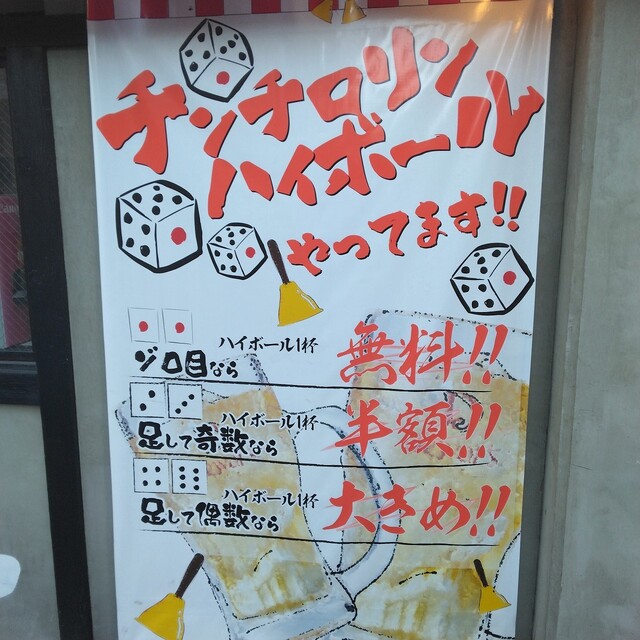 チンチロリン
ハイボール
やってます!!
ゾロ目なら
ハイボール1杯
無料!!
足して奇数なら
ハイボール1杯
半額!!
足して偶数なら
ハイボール1杯
大きめ!!